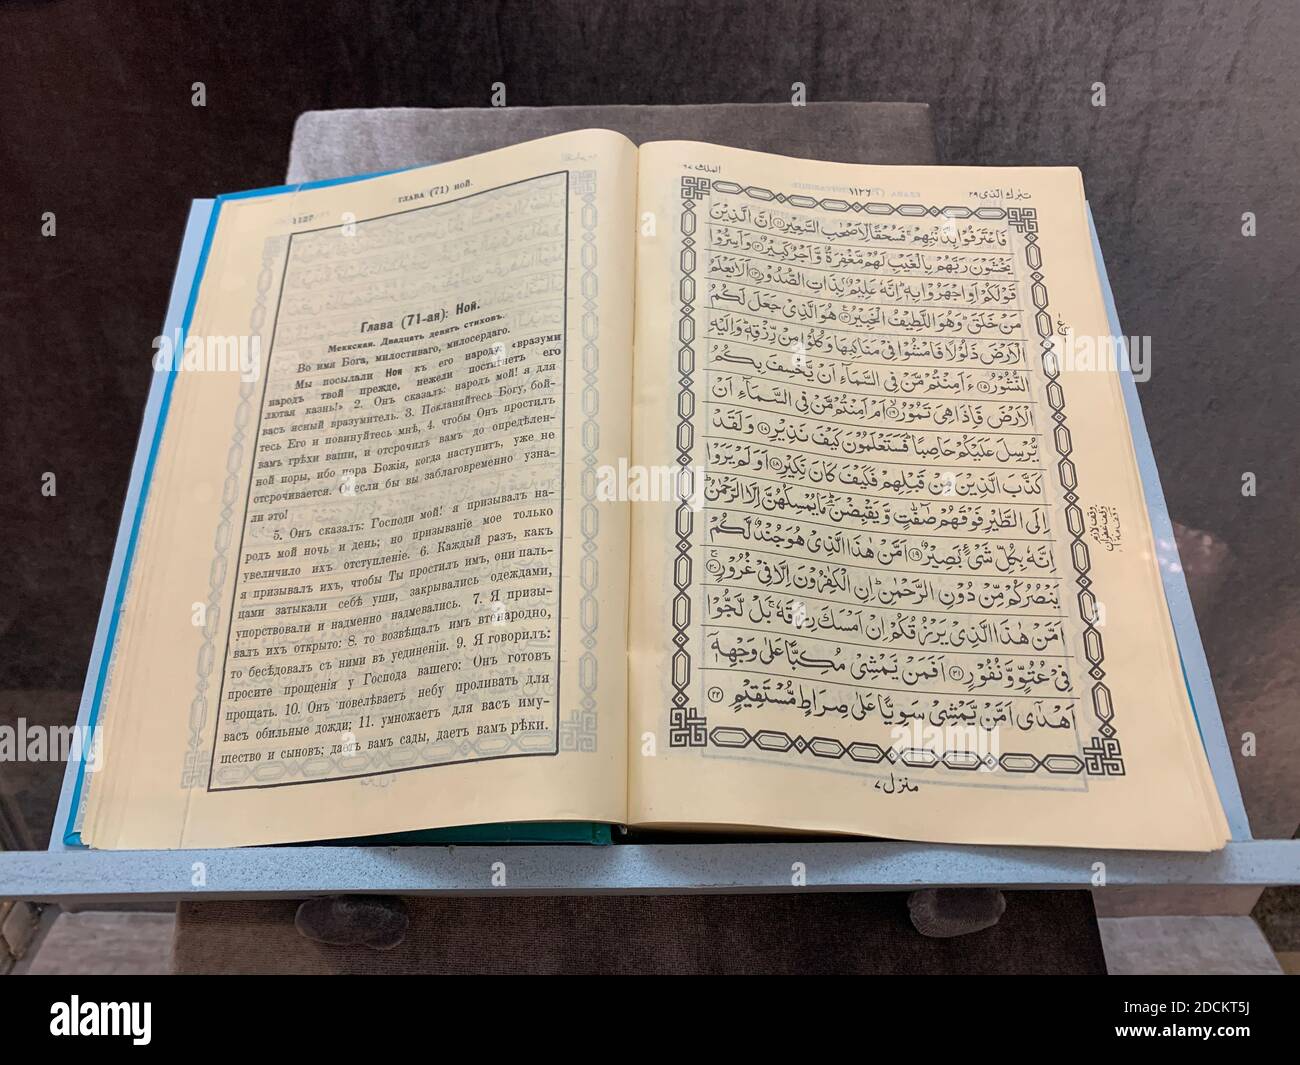 ГЛАВА (71) НОЙ.
1127
Глава (71-ая): Ной.
Меккская. Двадцать девять стиховъ.
Во имя Бога, милостиваго, милосердаго.
Мы посылали Ноя къ его народу: «вразуми
народъ твой прежде, нежели постигнетъ его
лютая казнь!» 2. Онъ сказалъ: народъ мой! я для
васъ ясный вразумитель. 3. Покланяйтесь Богу, бой-
тесь Его и повинуйтесь мнѣ, 4. чтобы Онъ простилъ
вамъ грѣхи ваши, и отсрочилъ вамъ до опредѣлен-
ной поры, ибо пора Божія, когда наступитъ, уже не
отсрочивается. О если бы вы заблаговременно узна-
ли это!
5. Онъ сказалъ: Господи мой! я призывалъ на-
родъ мой ночь и день; но призываніе мое только
увеличило ихъ отступленіе. 6. Каждый разъ, какъ
я призывалъ ихъ, чтобы Ты простилъ имъ, они паль-
цами затыкали себѣ уши, закрывались одеждами,
упорствовали и надменно надмевались. 7. Я призы-
валъ ихъ открыто: 8. то возвѣщалъ имъ всенародно,
то бесѣдовалъ съ ними въ уединеніи. 9. Я говорилъ:
просите прощенія у Господа вашего: Онъ готовъ
прощать. 10. Онъ повелѣваетъ небу проливать для
васъ обильные дожди; 11. умножаетъ для васъ иму-
щество и сыновъ; даетъ вамъ сады, даетъ вамъ рѣки.
تبٰرك الذى ٢٩ ١١٢٦ الملك ٦٧
فَاعْتَرَفُوْا بِذَنْۢبِهِمْ ۚ فَسُحْقًا لِّاَصْحٰبِ السَّعِيْرِ ۝١١ اِنَّ الَّذِيْنَ
يَخْشَوْنَ رَبَّهُمْ بِالْغَيْبِ لَهُمْ مَّغْفِرَةٌ وَّاَجْرٌ كَبِيْرٌ ۝١٢ وَاَسِرُّوْا
قَوْلَكُمْ اَوِ اجْهَرُوْا بِهٖ ؕ اِنَّهٗ عَلِيْمٌۢ بِذَاتِ الصُّدُوْرِ ۝١٣ اَلَا يَعْلَمُ
مَنْ خَلَقَ ؕ وَهُوَ اللَّطِيْفُ الْخَبِيْرُ ۝١٤ هُوَ الَّذِيْ جَعَلَ لَكُمُ
الْاَرْضَ ذَلُوْلًا فَامْشُوْا فِيْ مَنَاكِبِهَا وَكُلُوْا مِنْ رِّزْقِهٖ ؕ وَاِلَيْهِ
النُّشُوْرُ ۝١٥ ءَاَمِنْتُمْ مَّنْ فِي السَّمَآءِ اَنْ يَّخْسِفَ بِكُمُ
الْاَرْضَ فَاِذَا هِيَ تَمُوْرُ ۝١٦ اَمْ اَمِنْتُمْ مَّنْ فِي السَّمَآءِ اَنْ
يُّرْسِلَ عَلَيْكُمْ حَاصِبًا ؕ فَسَتَعْلَمُوْنَ كَيْفَ نَذِيْرِ ۝١٧ وَلَقَدْ
كَذَّبَ الَّذِيْنَ مِنْ قَبْلِهِمْ فَكَيْفَ كَانَ نَكِيْرِ ۝١٨ اَوَلَمْ يَرَوْا
اِلَى الطَّيْرِ فَوْقَهُمْ صٰٓفّٰتٍ وَّيَقْبِضْنَ ؔؕ مَا يُمْسِكُهُنَّ اِلَّا الرَّحْمٰنُ ؕ
اِنَّهٗ بِكُلِّ شَيْءٍۭ بَصِيْرٌ ۝١٩ اَمَّنْ هٰذَا الَّذِيْ هُوَ جُنْدٌ لَّكُمْ
يَنْصُرُكُمْ مِّنْ دُوْنِ الرَّحْمٰنِ ؕ اِنِ الْكٰفِرُوْنَ اِلَّا فِيْ غُرُوْرٍ ۝٢٠
اَمَّنْ هٰذَا الَّذِيْ يَرْزُقُكُمْ اِنْ اَمْسَكَ رِزْقَهٗ ۚ بَلْ لَّجُّوْا
فِيْ عُتُوٍّ وَّنُفُوْرٍ ۝٢١ اَفَمَنْ يَّمْشِيْ مُكِبًّا عَلٰى وَجْهِهٖٓ
اَهْدٰٓى اَمَّنْ يَّمْشِيْ سَوِيًّا عَلٰى صِرَاطٍ مُّسْتَقِيْمٍ ۝٢٢
وقف لازم
وقف غفران
منزل ٧
alamy
Image ID: 2DCKT5J
www.alamy.com